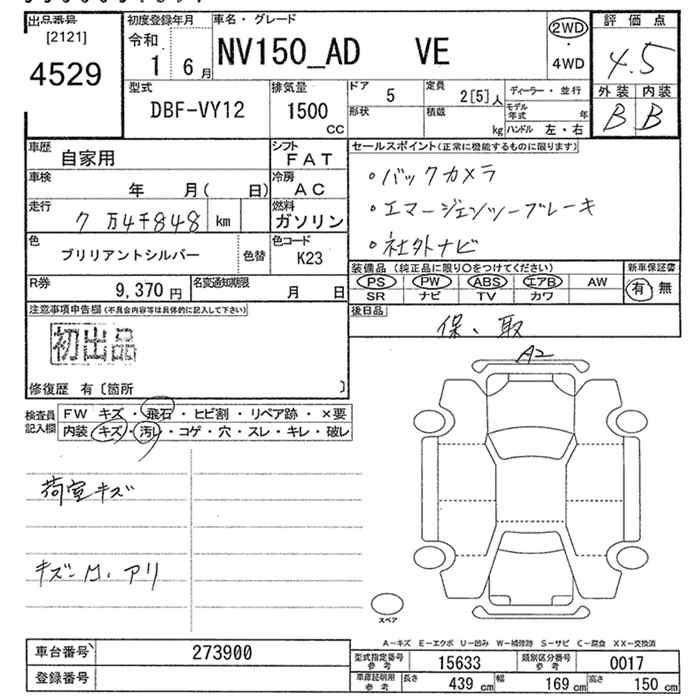 出品番号
[2121]
4529
初度登録年月
令和
1 6月
車名・グレード
NV150_AD VE
2WD
・
4WD
評価点
4.5
外装 内装
B B
型式
DBF-VY12
排気量
1500
CC
ドア 5
形状
定員 2[5]人
積載 kg
ディーラー・並行
モデル年式 年
ハンドル 左・右
車歴 自家用
シフト FAT
車検 年 月( 日)
冷房 AC
走行 7万4千848 km
燃料 ガソリン
色 ブリリアントシルバー 色替
色コード K23
R券 9,370円
名変通知期限 月 日
セールスポイント(正常に機能するものに限ります)
・バックカメラ
・エマージェンシーブレーキ
・社外ナビ
装備品 (純正品に限り○をつけてください)
PS PW ABS エアB AW
SR ナビ TV カワ
新車保証書
有 無
後日品
保、取
注意事項申告欄(不具合内容等は具体的に記入して下さい)
初出品
修復歴 有〔箇所 〕
検査員記入欄
FW キズ・飛石・ヒビ割・リペア跡・×要
内装 キズ・汚レ・コゲ・穴・スレ・キレ・破レ
荷室キズ
A2
スペア
A-キズ E-エクボ U-凹み W-補修跡 S-サビ C-腐食 XX-交換済
車台番号 273900
登録番号
型式指定番号参考 15633
類別区分番号参考 0017
車庫証明用参考 長さ 439cm 幅 169cm 高さ 150cm